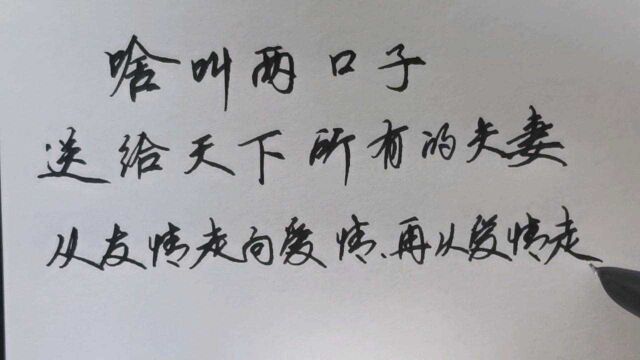 啥叫两口子
送给天下所有的夫妻
从友情走向爱情、再从爱情走